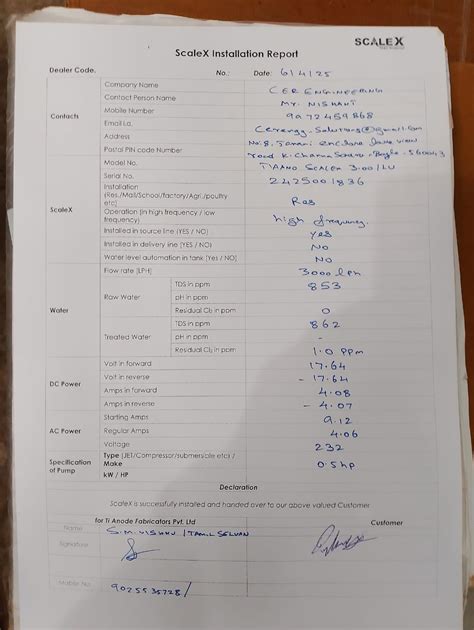 SCALEX
ScaleX Installation Report
Dealer Code. No.: Date: 6/4/25
Contacts
Company Name CER ENGINEERING
Contact Person Name Mr. NISHANT
Mobile Number 9972459868
Email I.d. Cerengg.Solutions@gmail.com
Address No.8, Janani enclave lake view
Postal PIN code Number road K. Channa Sandra - Bngle - 560043
ScaleX
Model No. TIANO SCALEX 3.00/LU
Serial No. 2425001836
Installation (Res./Mall/School/factory/Agri./poultry etc) Res
Operation (in high frequency / low frequency) high frequency
Installed in source line (YES / NO) Yes
Installed in delivery line (YES / NO) No
Water level automation in tank (Yes / NO) No
Water
Flow rate (LPH) 3000 lph
Raw Water
TDS in ppm 853
pH in ppm
Residual Cl₂ in ppm 0
Treated Water
TDS in ppm 862
pH in ppm -
Residual Cl₂ in ppm 1.0 ppm
DC Power
Volt in forward 17.64
Volt in reverse - 17.64
Amps in forward 4.08
Amps in reverse - 4.07
AC Power
Starting Amps 9.12
Regular Amps 4.06
Voltage 232
Specification of Pump
Type (JET/Compressor/submersible etc) / Make
kW / HP 0.5hp
Declaration
ScaleX is successfully installed and handed over to our above valued Customer
for Ti Anode Fabricators Pvt. Ltd Customer
Name S.M. VISHNU / TAMIL SELVAN
Signature
Mobile No 9025535728/